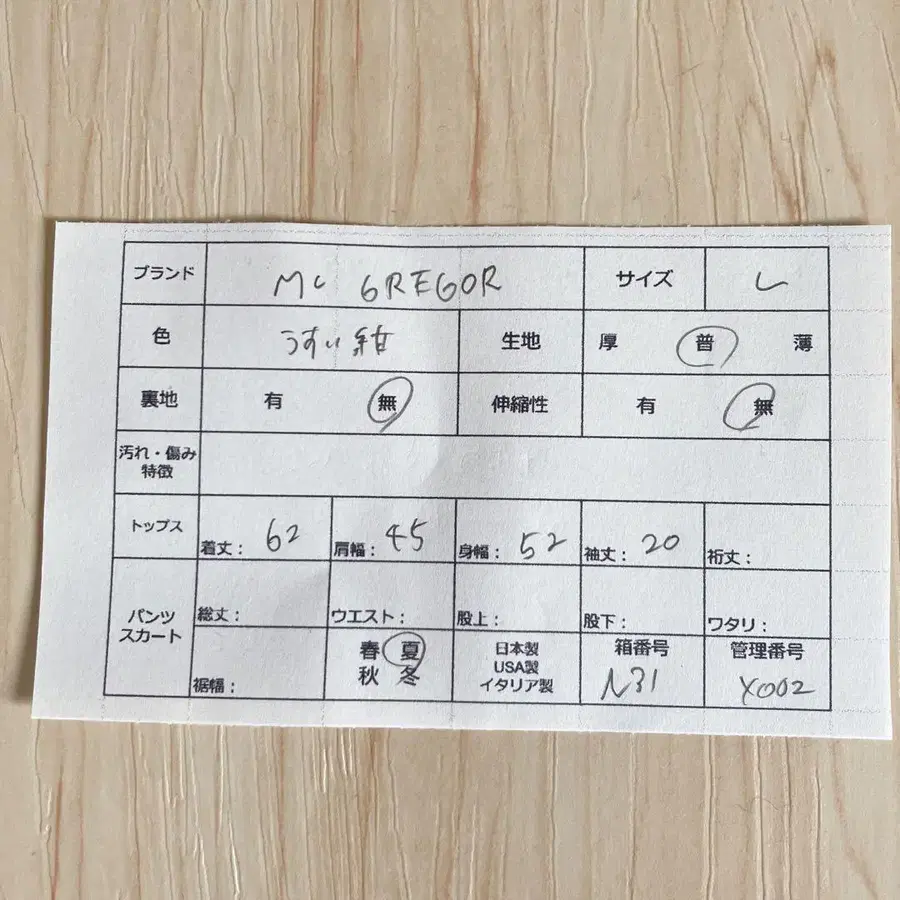 ブランド MC GREGOR サイズ L
色 うすい紺 生地 厚 普 薄
裏地 有 無 伸縮性 有 無
汚れ・傷み
特徴
トップス 着丈: 62 肩幅: 45 身幅: 52 袖丈: 20 裄丈:
パンツ
スカート
総丈: ウエスト: 股上: 股下: ワタリ:
裾幅:
春 夏
秋 冬
日本製
USA製
イタリア製
箱番号
N31
管理番号
X002